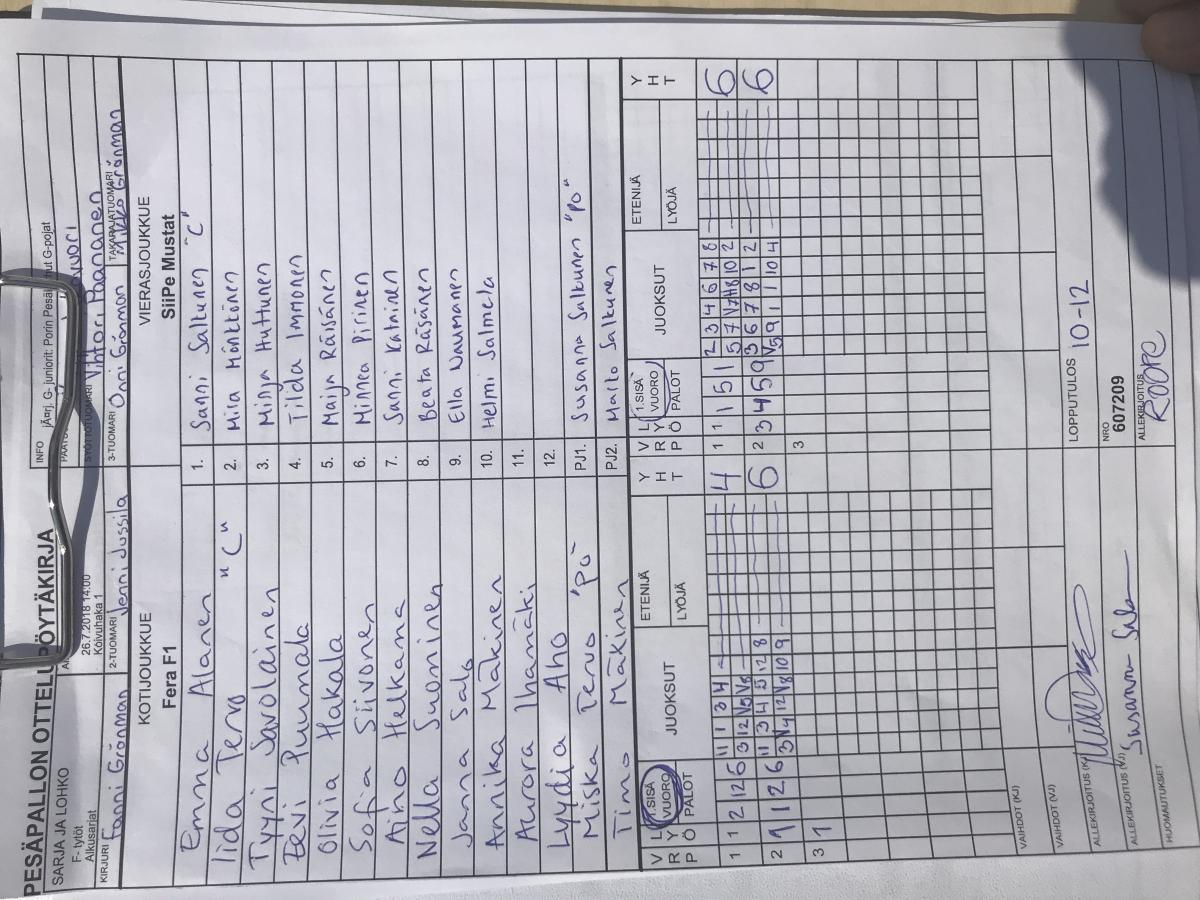 PESÄPALLON OTTELUPÖYTÄKIRJA
SARJA JA LOHKO
F- tytöt
Alkusarjat
26.7.2018 14:00
Koivuhaka 1
INFO
järj. G- juniorit: Porin Pesäkarhut G-pojat
SYÖTTÖTUOMARI Vihtori Paananen
KIRJURI Fanni Grönman
2-TUOMARI Jenni Jussila
3-TUOMARI Onni Grönman
TAKARAJATUOMARI Mikko Grönman
KOTIJOUKKUE
Fera F1
VIERASJOUKKUE
SiiPe Mustat
Emma Alanen 1. Sanni Salkunen "C"
Iida Tervo "C" 2. Miira Mönkkönen
Tyyni Savolainen 3. Minja Huttunen
Eevi Puumala 4. Tilda Immonen
Olivia Hakala 5. Maija Räsänen
Sofia Siivonen 6. Minnea Pirinen
Aino Helkama 7. Sanni Katainen
Nella Suominen 8. Beata Räsänen
Janna Salo 9. Ella Naumanen
Annika Mäkinen 10. Helmi Salmela
Aurora Ihamäki 11.
Lyydia Aho 12.
Miska Tervo "PO" PJ1. Susanna Salkunen "PO"
Timo Mäkinen PJ2. Marko Salkunen
V R P L Y Ö 1.SISÄ VUORO PALOT JUOKSUT ETENIJÄ LYÖJÄ Y H T
V R P L Y Ö 1.SISÄ VUORO PALOT JUOKSUT ETENIJÄ LYÖJÄ Y H T
1 1 2 12 6 11 1 3 4 4
1 1 1 5 1 2 3 4 6 7 8 6
2 9 1 2 6 11 3 4 5 12 8 6
2 3 4 5 9 3 6 7 8 1 2 6
3 1
3
VAIHDOT (KJ)
VAIHDOT (VJ)
LOPPUTULOS 10-12
ALLEKIRJOITUS (KJ)
NRO
607209
ALLEKIRJOITUS (VJ) Susanna
ALLEKIRJOITUS
ROOPE
HUOMAUTUKSET